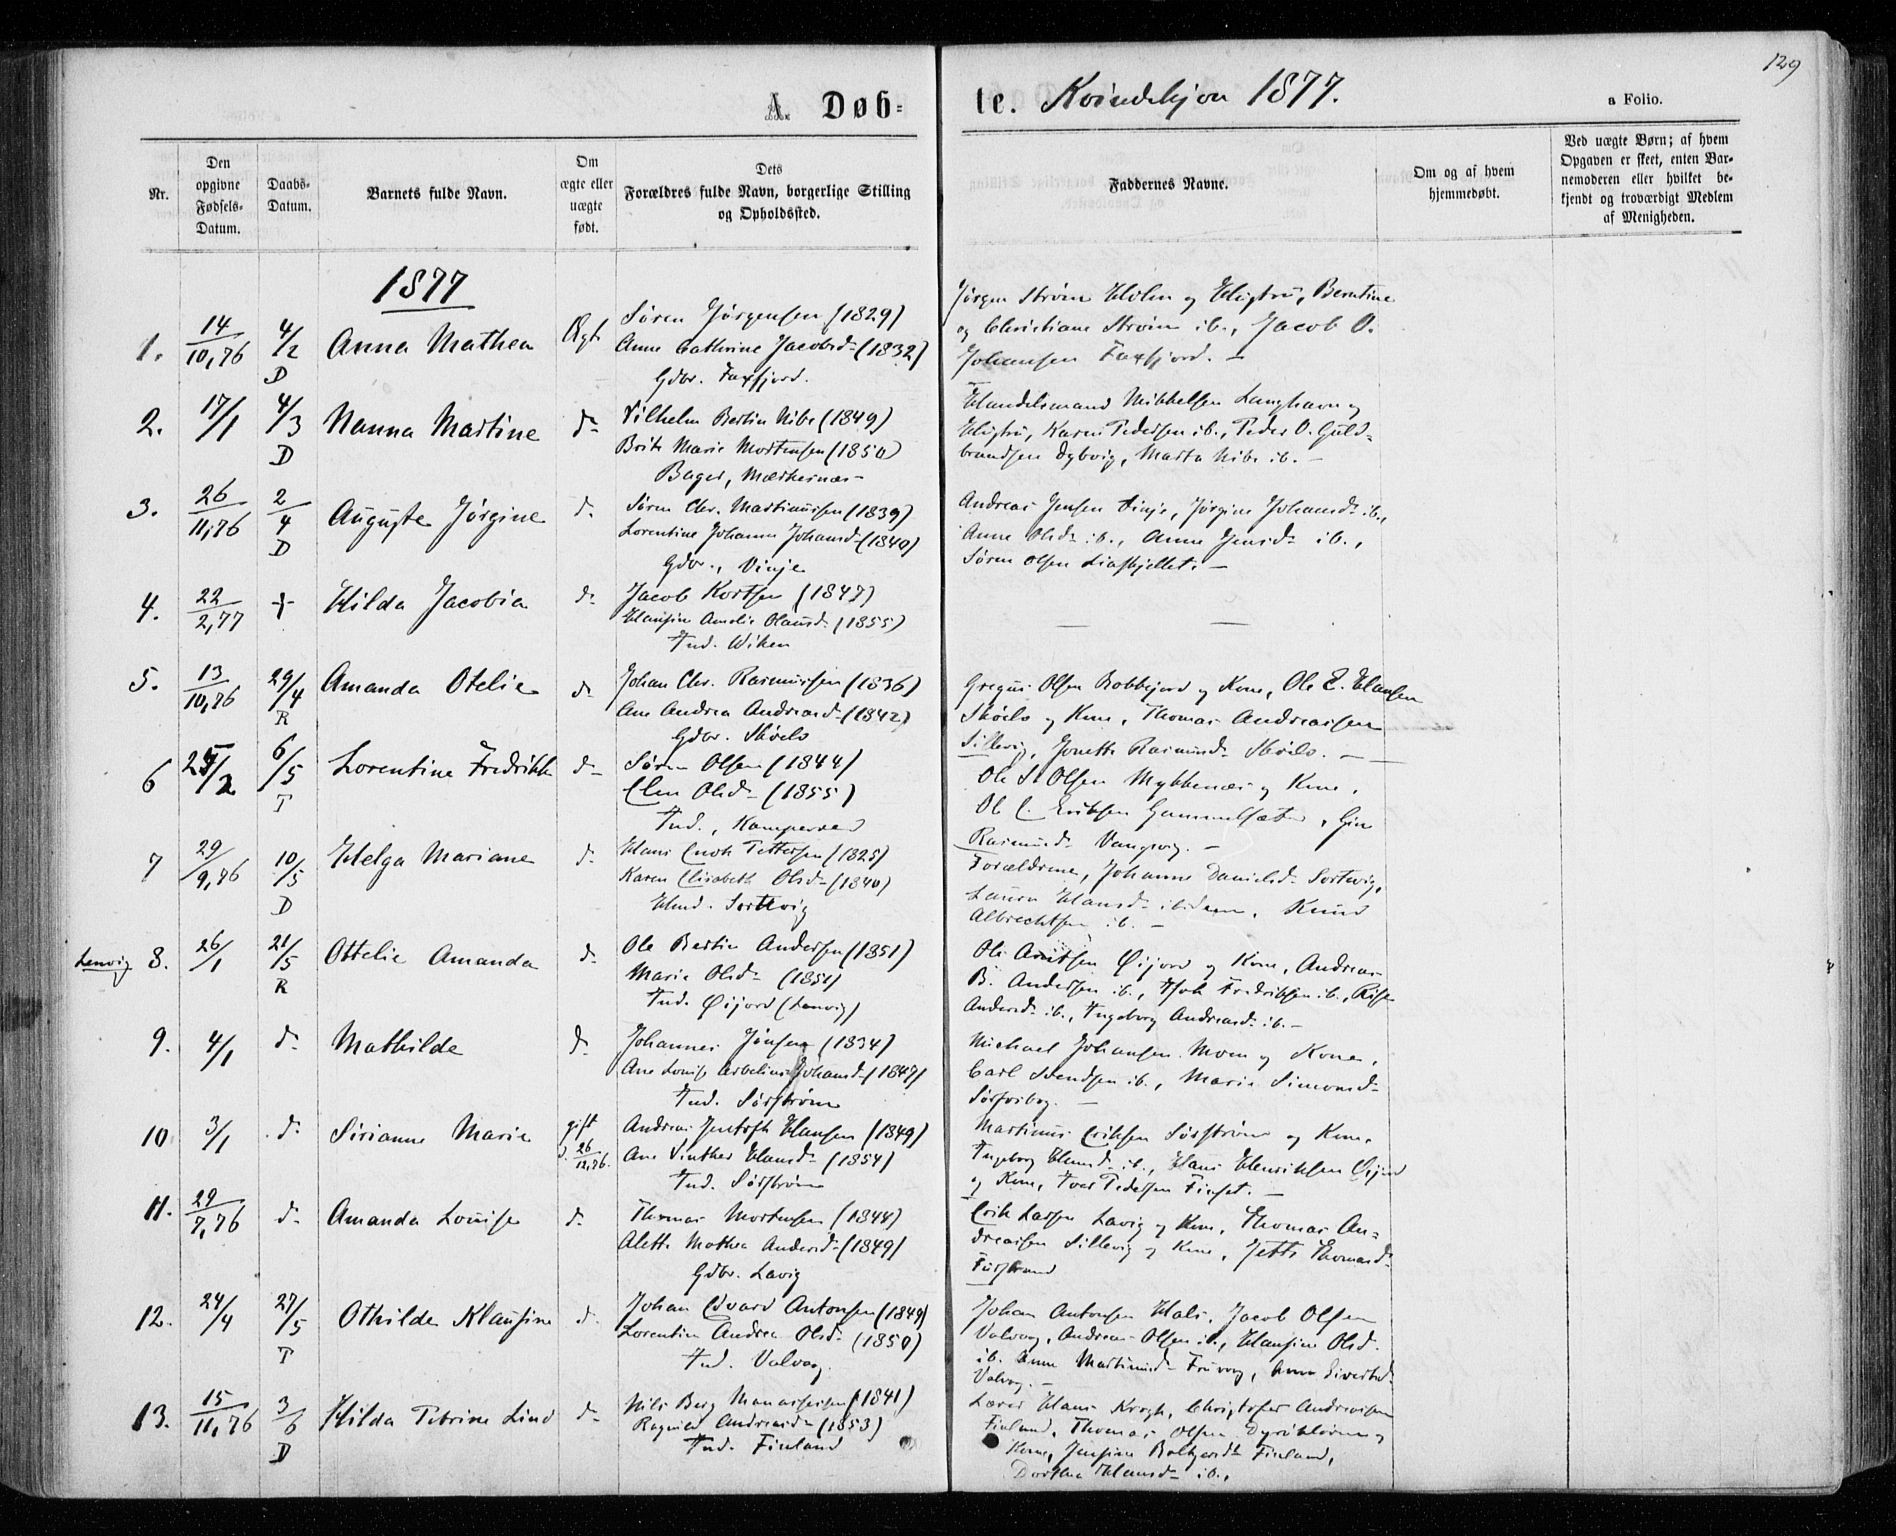 129
A. Døb=
te. Kvindekjøn 1877.
a Folio.
Nr.
Den opgivne Fødsels-Datum.
Daabs-Datum.
Barnets fulde Navn.
Om ægte eller uægte født.
Dets Forældres fulde Navn, borgerlige Stilling og Opholdssted.
Faddernes Navne.
Om og af hvem hjemmedøbt.
Ved uægte Børn; af hvem Opgaven er skeet, enten Barnemoderen eller hvilket bekjendt og troværdigt Medlem af Menigheden.
1877
1. 14/10,76 4/2 D Anna Mathea Ægt
Søren Jørgensen (1829)
Anne Cathrine Jacobsd- (1832)
Gdbr. Faxfjord.
Jørgen Strøm Holm og Hustru, Berntine
og Christiane Strøm ib., Jacob O.
Johansen Faxfjord. -
2. 17/1 4/3 D Nanna Martine do
Vilhelm Bertin Nibe (1849)
Brite Marie Mortensen (1850)
Bager, Mærkenæs-
Handelsmand Mikkelsen Langhavn og
Hustru, Karen Pedersen ib., Peder O. Guld=
brandsen Dybvig, Marta Nibe ib. -
3. 26/11,76 2/4 D Auguste Jørgine do
Søren Chr. Martinussen (1839)
Lorentine Johanna Johansd- (1840)
Gdbr., Vinje
Andreas Jensen Vinje, Jørgine Johansd- ib.,
Anne Olsd- ib., Anne Jensd- ib.,
Søren Olsen Liafjellet. -
4. 22/2,77 + Hilda Jacobia do
Jacob Kortsen (1847)
Hansine Amalie Olausd- (1855)
Ind. Wiken
5. 13/10,76 29/4 R Amanda Otelie do
Johan Chr. Rasmussen (1836)
Ane Andrea Andreasd- (1842)
Gdbr. Skøelv
Gregus Olsen Bobbjord og Kone, Ole E. Hansen
Skøelv og Kone, Thomas Andreassen
Sillevig, Jonette Rasmusd- Skøelv. -
6 25/2 6/5 T Lorentine Fredrikke do
Søren Olsen (1844)
Elen Olsd- (1855)
Ind., Kampevær
Ole S. Olsen Mykkenæs og Kone,
Ol C. Eriksen Gammelsæter,
Rasmusd- Vangsvig. -
7 29/9,76 10/5 D Helga Mariane do
Hans Enok Pettersen (1825)
Karen Elisabeth Olsd- (1840)
Hmd. Sortevig
Forældrene, Johanne Danielsd- Sortevig,
Laura Hansd- ibidem, Knud
Albrechtsen ib. -
Lenvig 8. 26/1 21/5 R Ottelie Amanda do
Ole Bertin Andersen (1851)
Marie Olsd- (1851)
Ind. Øijord (Lenvig)
Ole Arntsen Øijord og Kone, Andreas
B. Andersen ib., Fredriksen ib.,
Andersd- ib., Ingeborg Andreasd- ib. -
9. 4/1 do Mathilde do
Johannes Jensen (1834)
Ane Louise Johansd- (1847)
Ind. Sørstrøm
Michael Johansen Moen og Kone,
Carl Svendsen ib., Marie Simonsd-
10 3/1 do Sirianne Marie gift d. 26/12,76.
Andreas Jentoft Hansen (1849)
Ane Vinther Hansd- (1854)
Ind. Sørstrøm
Martinus Eriksen Sørstrøm og Kone,
Ingeborg Hansd- ib., Hans Henriksen Øijord
og Kone, Iver Pedersen Finset. -
11. 29/7,76 do Amanda Louise do
Thomas Mortensen (1844)
Alette Mathea Andersd- (1849)
Gdbr. Lavig
Erik Larsen Lavig og Kone, Thomas An=
dreassen Sillevig og Kone, Jette Thomasd-
Furstrand
12. 24/4 27/5 T Othilde Klausine do
Johan Edvard Antonsen (1849)
Lorentine Andrea Olsd- (1850)
Ind. Valvag.
Johan Antonsen Hals, Jacob Olsen
Valvag, Andreas Olsen ib., Hansine Olsd.
ib. Anne Martinusd- Fruvog, Anna Sivertsd-
Valvog. -
13. 15/11,76 3/6 D Hilda Petrine Lind do
Nils Berg Manassesen (1841)
Ragnild Andreasd- (1853)
Ind. Finland
Lærer Hans Krogh, Christofer Andreassen
Finland, Thomas Olsen Dyrøkloven og
Kone, Jensine Boltgersd- Finland,
Dorthea Hansd- ib.,